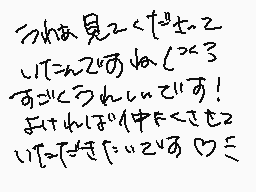 うわぁ見てくださって
いたんですねくつろ
すごくうれしいです！
よければ仲よくさせて
いただきたいです♡ミ